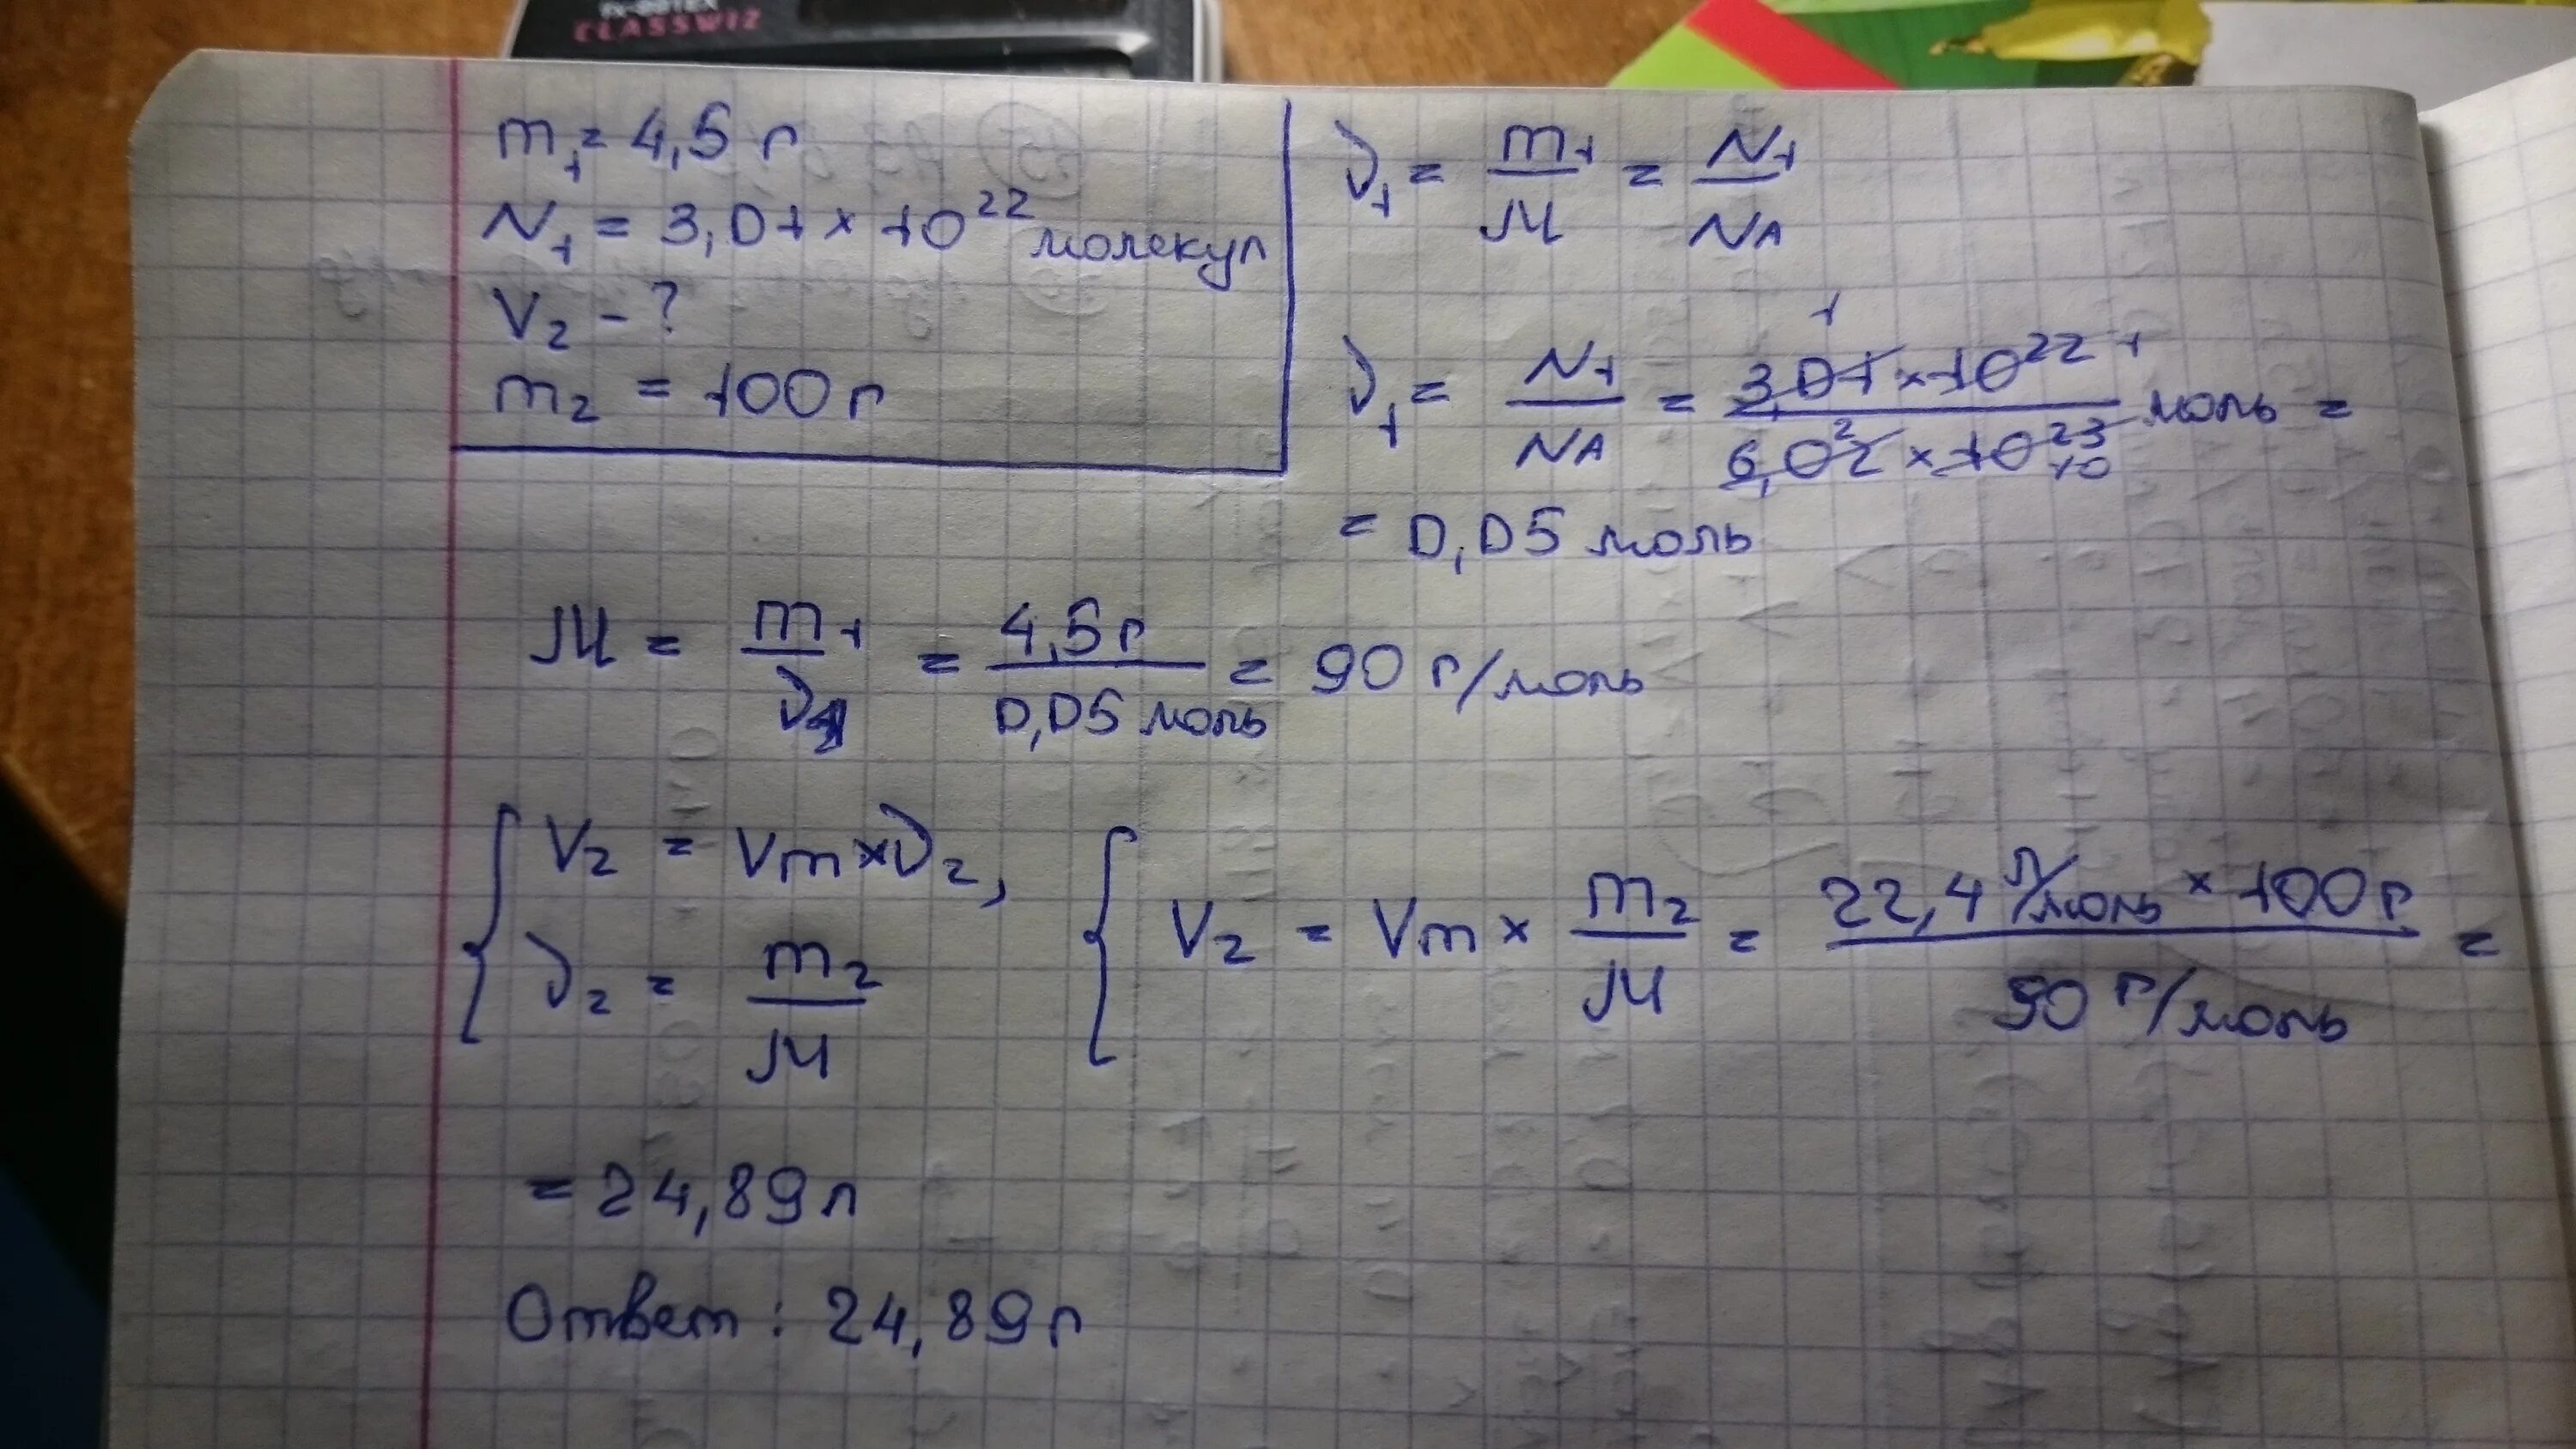 CLASSWIZ
m₁ = 4,5 г
N₁ = 3,01 × 10²² молекул
V₂ - ?
m₂ = 100 г
ν₁ = m₁/M = N₁/NA
ν₁ = N₁/NA = 3,01 × 10²² / 6,02 × 10²³ моль =
= 0,05 моль
M = m₁/ν₁ = 4,5 г / 0,05 моль = 90 г/моль
V₂ = Vm × ν₂,
ν₂ = m₂/M
V₂ = Vm × m₂/M = 22,4 л/моль × 100 г / 90 г/моль =
= 24,89 л
Ответ: 24,89 л